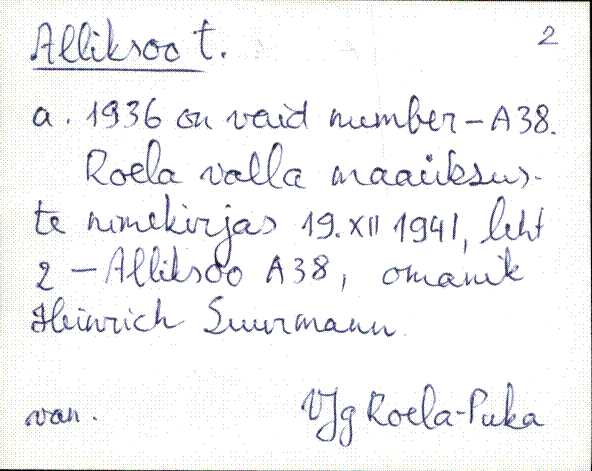 Alliksoo t. 2
a. 1936 on vaid number – A38.
Roela valla maaüksus-
te nimekirjas 19. XII 1941, leht
2 – Alliksoo A38, omanik
Heinrich Suurmann.
van. VJg Roela-Puka